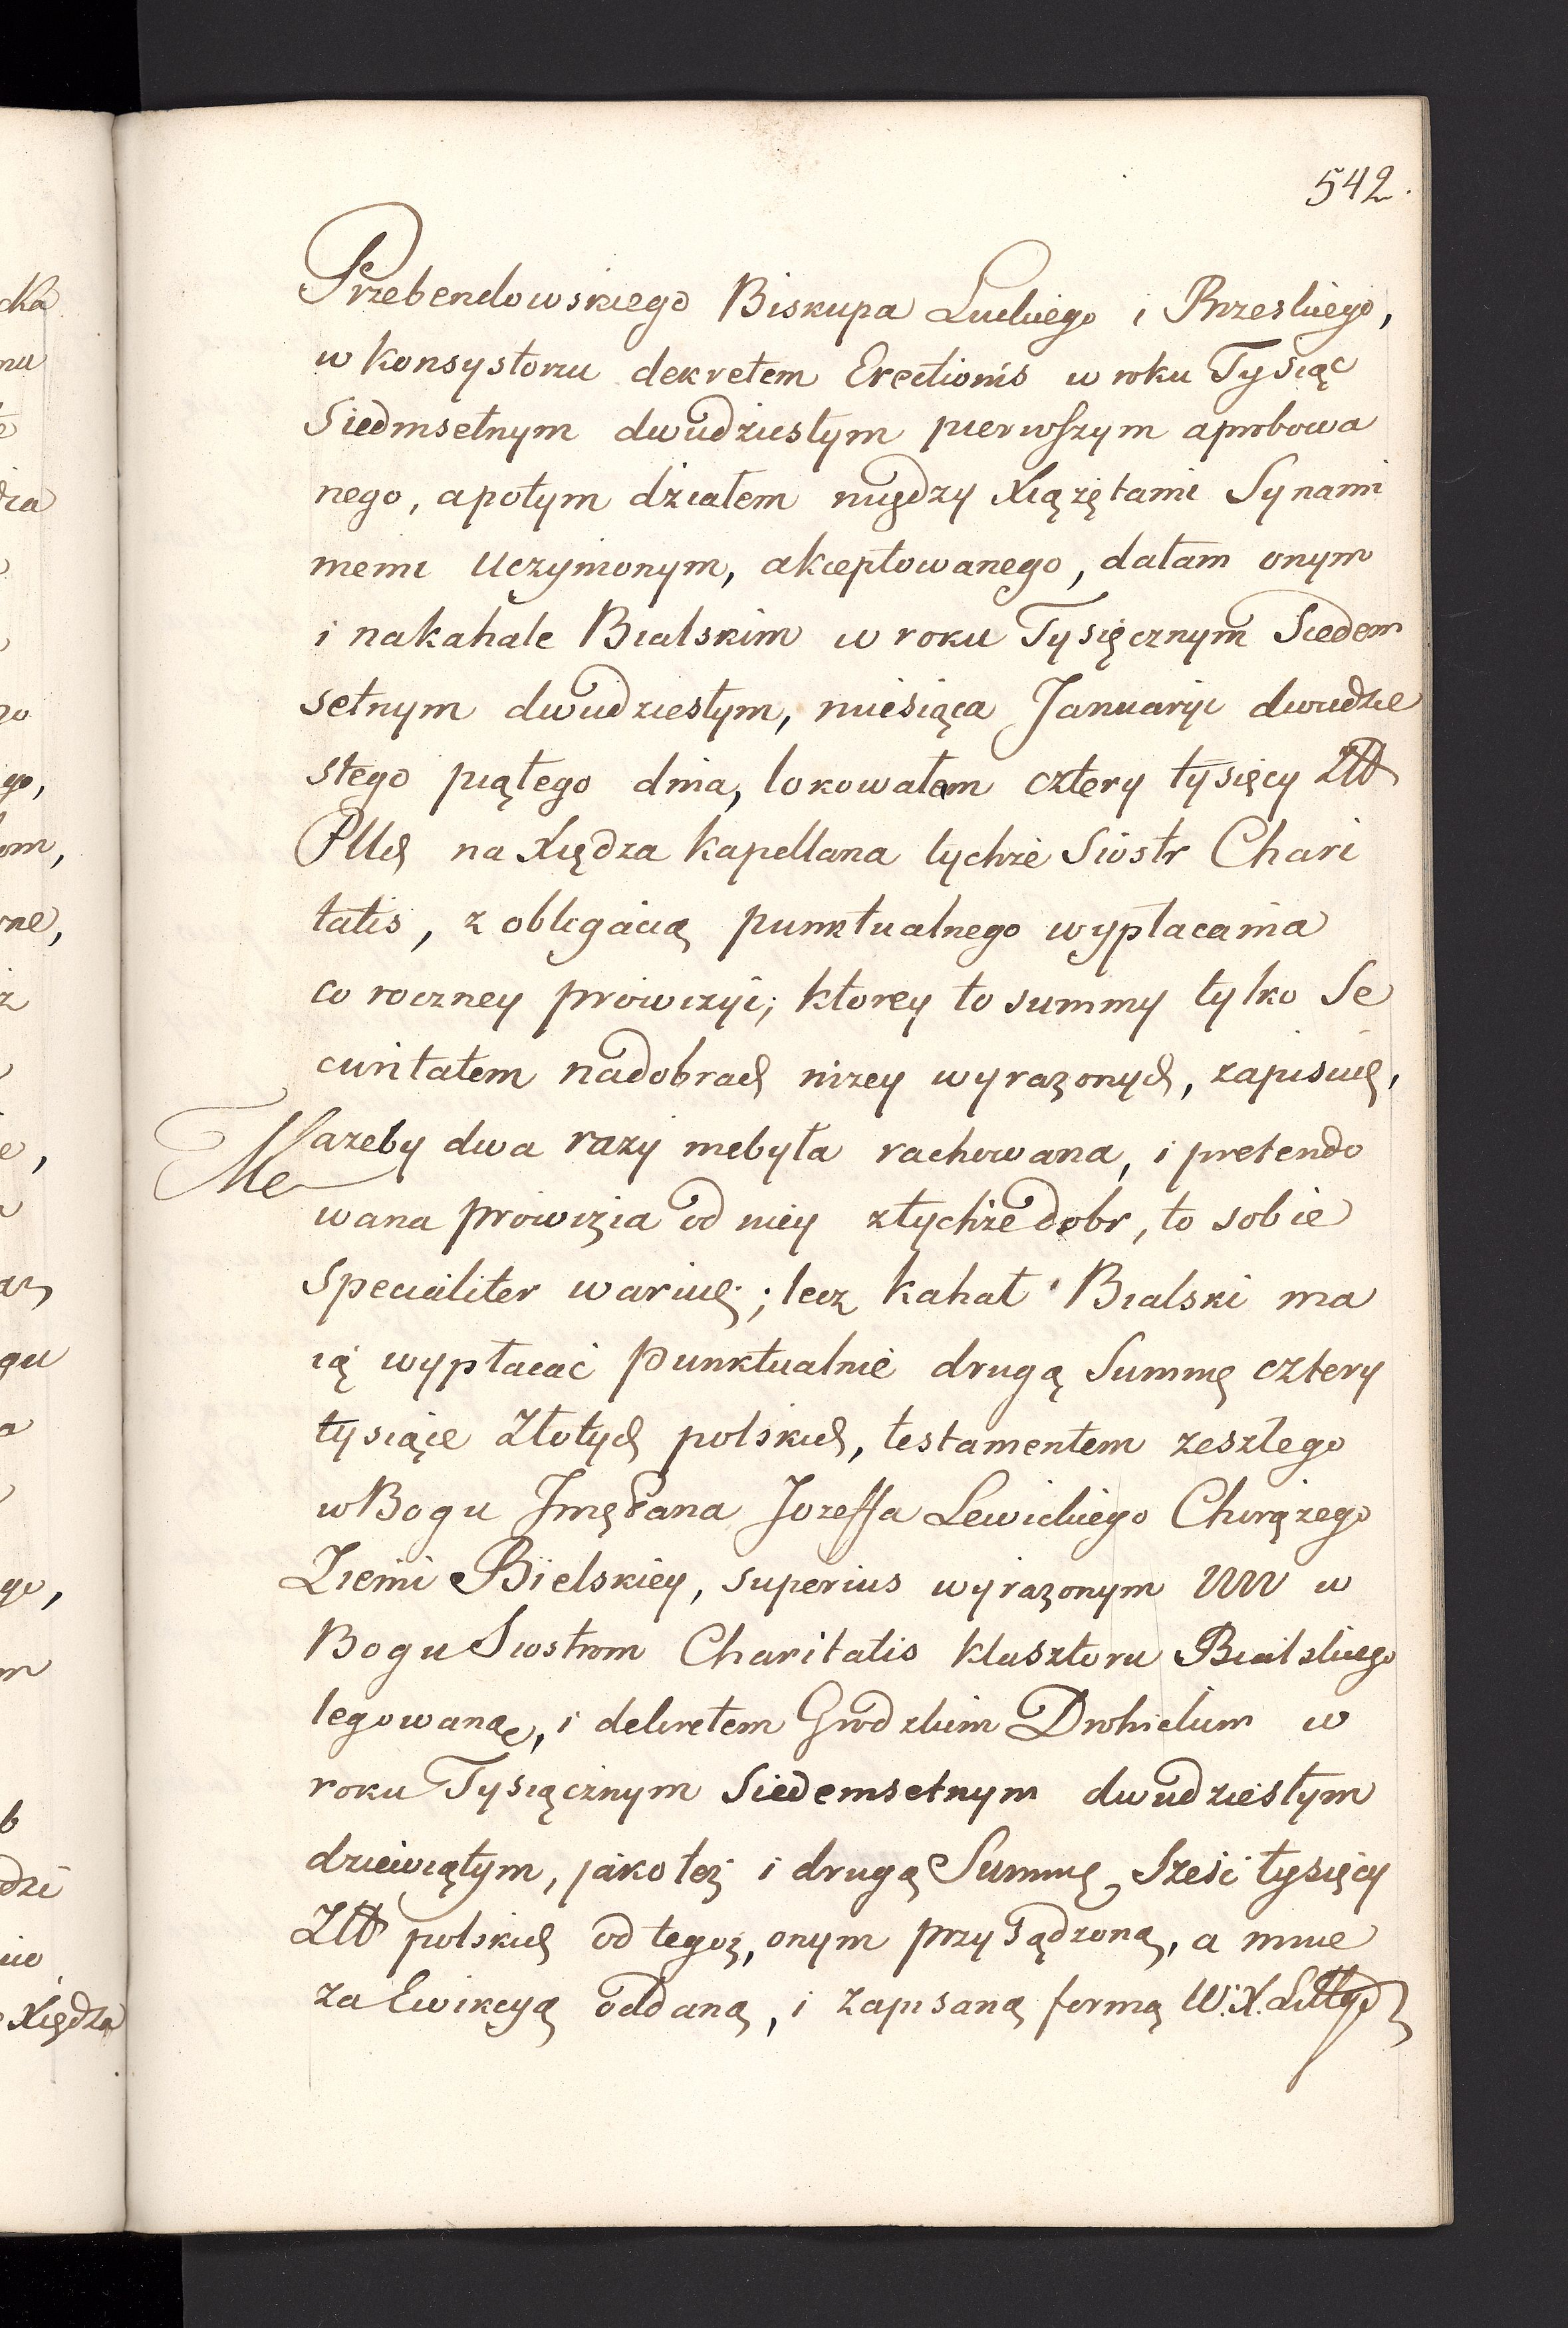 542.
Przebendowskiego Biskupa Luckiego i Brzeskiego,
w Konsystorzu dekretem Erectionis w roku Tysiąc
Siedmsetnym dwudziestym pierwszym aprobowa
nego, a potym działem między Xiążętami Synami
memi Uczynionym, akceptowanego, dałam onym
i na kahale Bialskim w roku Tysięcznym Siedem
setnym dwudziestym, miesiąca Januarÿi dwudzie
stego piątego dnia, lokowałam cztery tysięcy Złł
Pllch na Xiędza Kapellana tychże Siostr Chari
tatis, z obligacią punktualnego wypłacania
co roczney prowizyi; ktorey to summy tylko Se
curitatem na dobrach niżey wyrażonych, zapisuię,
ażeby dwa razy niebyła rachowana, i pretendo
wana prowizia od niey z tychże dobr, to sobie
specialiter waruię; lecz Kahał Bialski ma
ią wypłacać punktualnie drugą Summę cztery
tysiące Złotych polskich, testamentem zeszłego
w Bogu Jmę Pana Jozeffa Lewickiego Chorążego
Ziemi Bielskiey, superius wyrażonym WW w
Bogu Siostrom Charitatis klasztoru Bialskiego
legowaną, i dekretem Grodzkim Drohickim w
roku Tysiącznym Siedemsetnym dwudziestym
dziewiątym, jako też i drugą Summę Sześć tysięcy
Złł polskich od tegoż, onym przysądzoną, a mnie
za Ewikcyą oddaną, i zapisaną formą W. X. Littgo